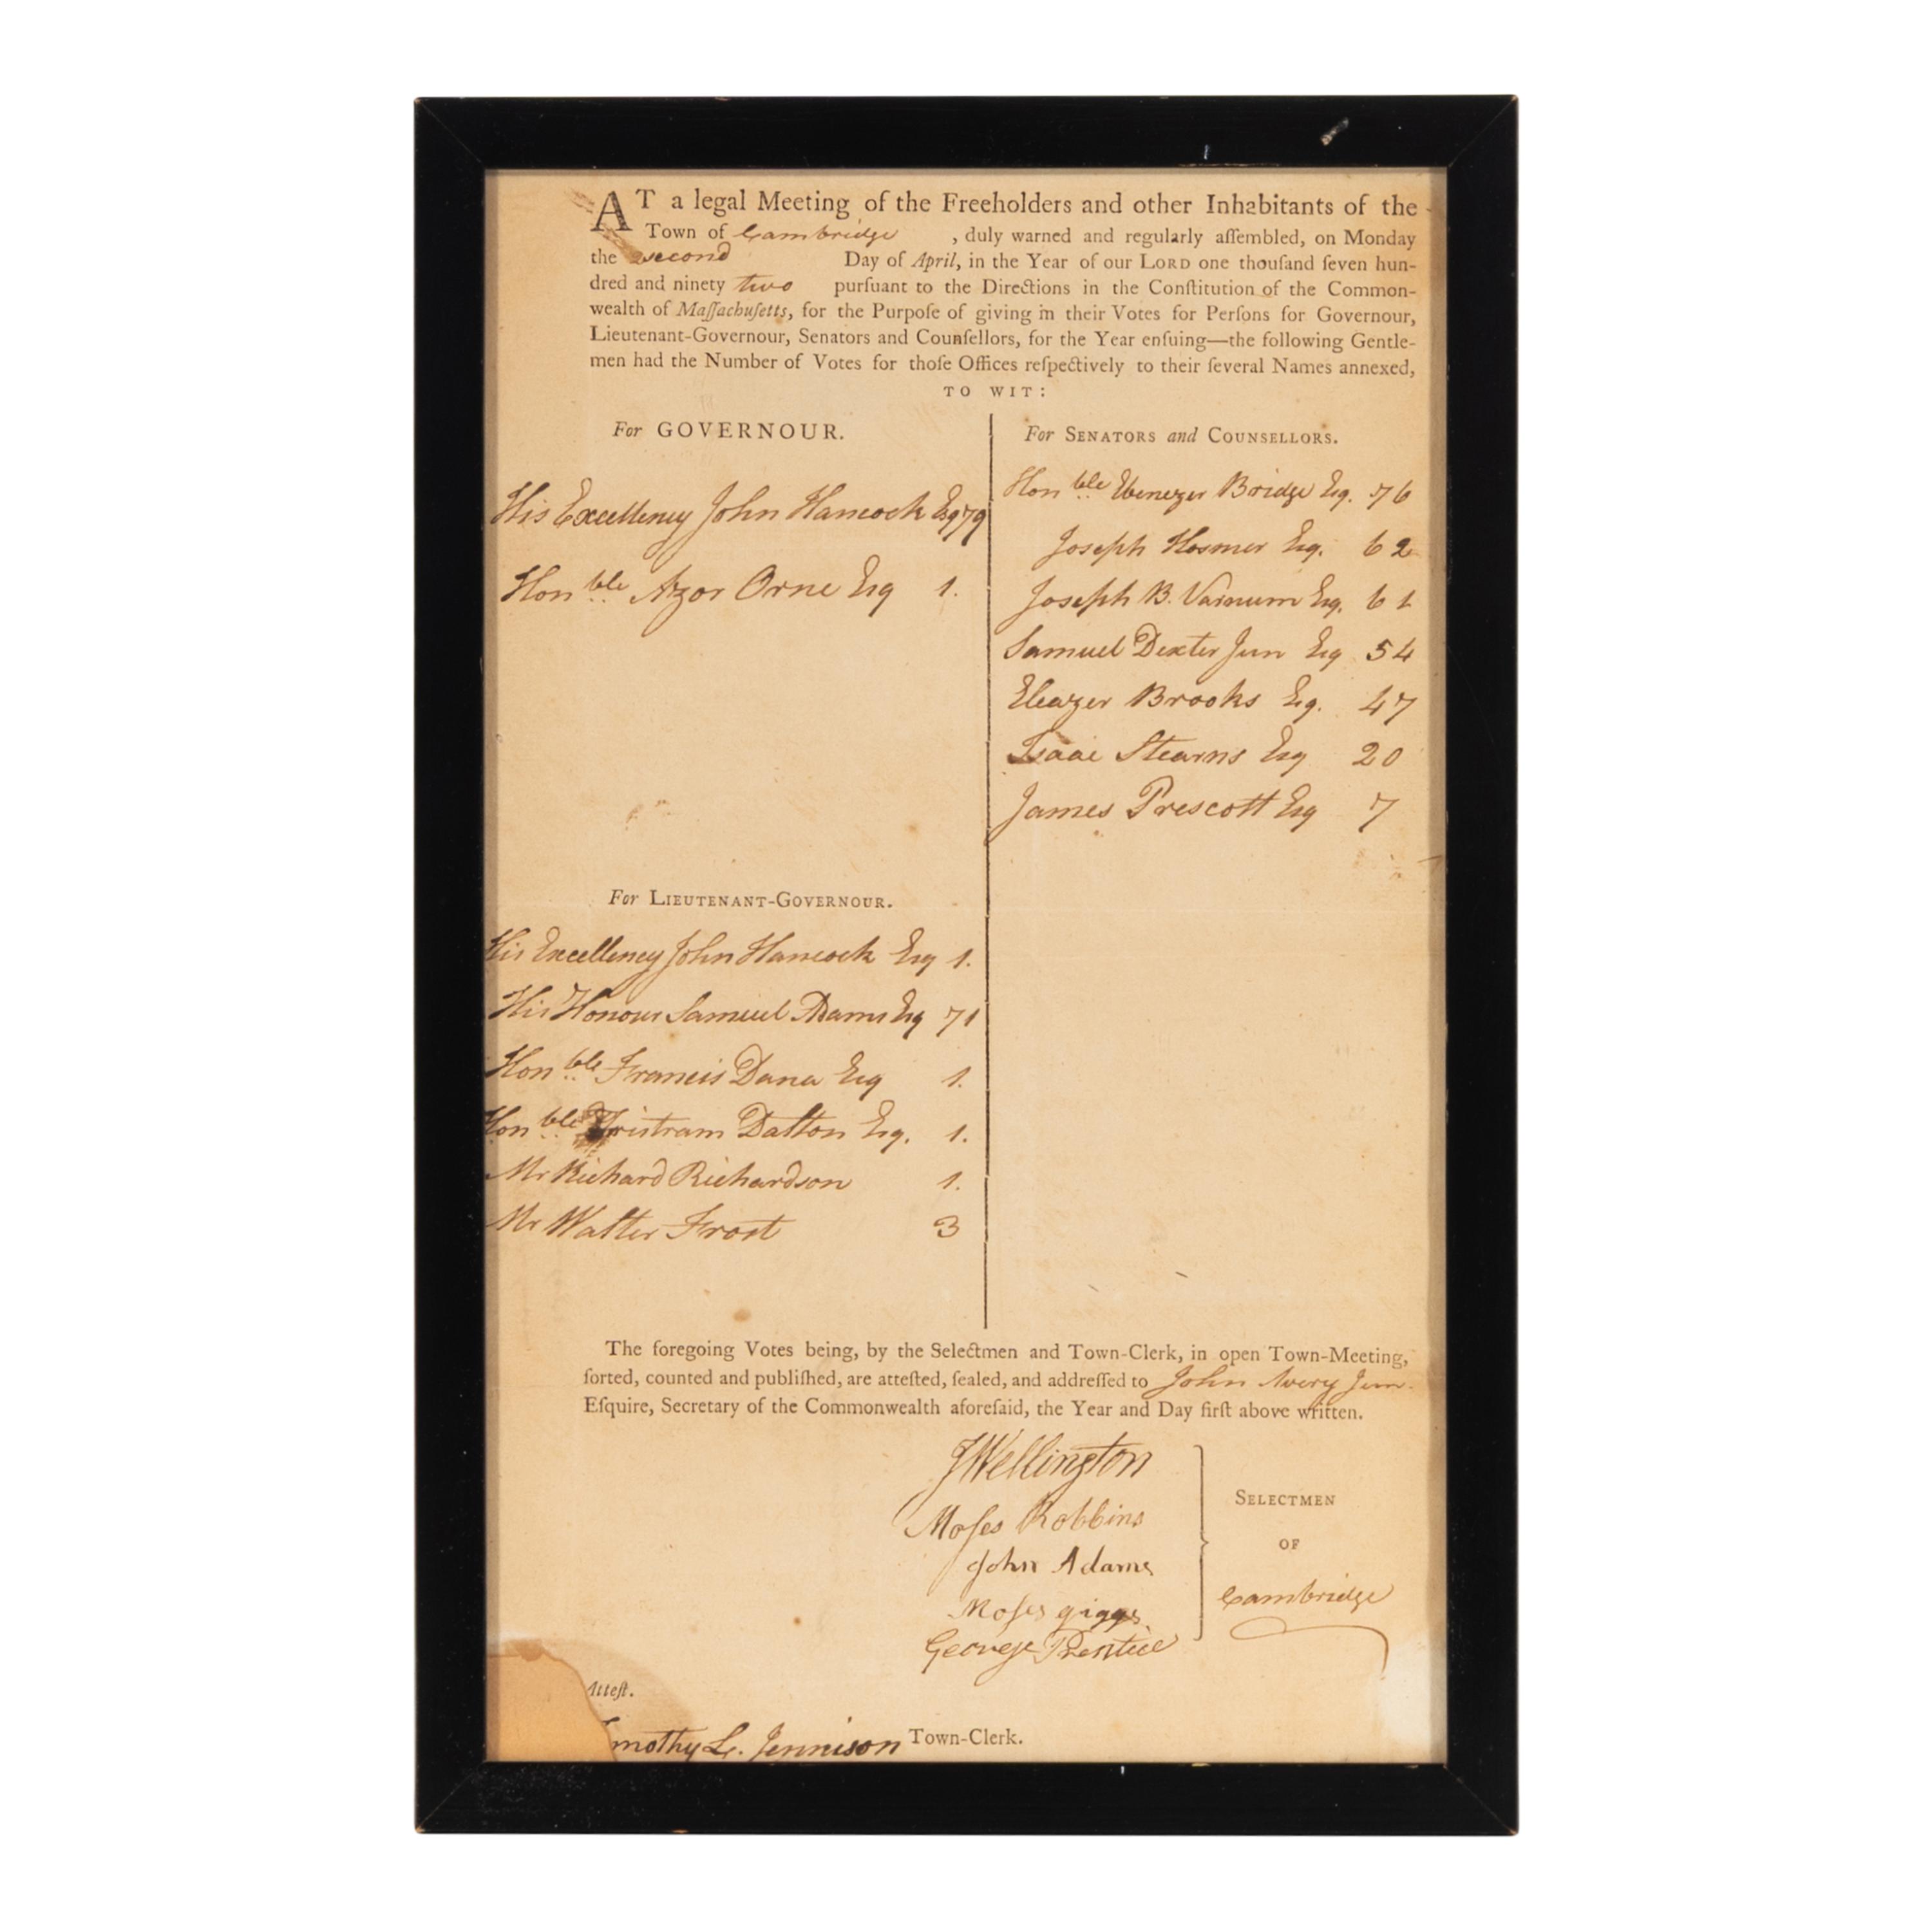 AT a legal Meeting of the Freeholders and other Inhabitants of the
Town of Cambridge , duly warned and regularly aſſembled, on Monday
the second Day of April, in the Year of our LORD one thouſand ſeven hun-
dred and ninety two purſuant to the Directions in the Conſtitution of the Common-
wealth of Maſſachuſetts, for the Purpoſe of giving in their Votes for Perſons for Governour,
Lieutenant-Governour, Senators and Counſellors, for the Year enſuing—the following Gentle-
men had the Number of Votes for thoſe Offices reſpectively to their ſeveral Names annexed,
TO WIT:
For GOVERNOUR.
His Excellency John Hancock Esq 79
Honble Azor Orne Esq 1.
For LIEUTENANT-GOVERNOUR.
His Excellency John Hancock Esq 1.
His Honour Samuel Adams Esq 71
Honble Francis Dana Esq 1.
Honble Tristram Dalton Esq. 1.
Mr Richard Richardson 1.
Mr Walter Frost 3
For SENATORS and COUNSELLORS.
Honble Ebenezer Bridge Esq. 76
Joseph Hosmer Esq. 62
Joseph B. Varnum Esq. 61
Samuel Dexter Jun Esq 54
Eleazer Brooks Esq. 47
Isaac Stearns Esq 20
James Prescott Esq 7
The foregoing Votes being, by the Selectmen and Town-Clerk, in open Town-Meeting,
ſorted, counted and publiſhed, are atteſted, ſealed, and addreſſed to John Avery Jun.
Eſquire, Secretary of the Commonwealth aforeſaid, the Year and Day firſt above written.
J Wellington
Moſes Robbins
John Adams
Moſes griggs
George Prentice
SELECTMEN
OF
Cambridge
Atteſt.
mothy L. Jennison Town-Clerk.